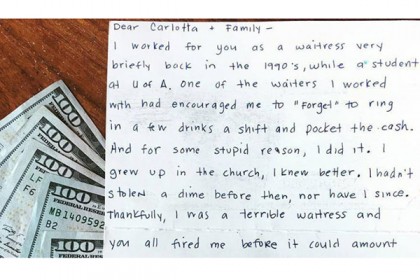 Dear Carlotta + Family -
I worked for you as a waitress very
briefly back in the 1990's, while a student
at U of A. One of the waiters I worked
with had encouraged me to "Forget" to ring
in a few drinks a shift and pocket the cash.
And for some stupid reason, I did it. I
grew up in the church, I knew better. I hadn't
stolen a dime before then, nor have I since.
Thankfully, I was a terrible waitress and
you all fired me before it could amount
100
100
100
LF
F6
100
FEDERAL RESERVE
MB1409592
B2